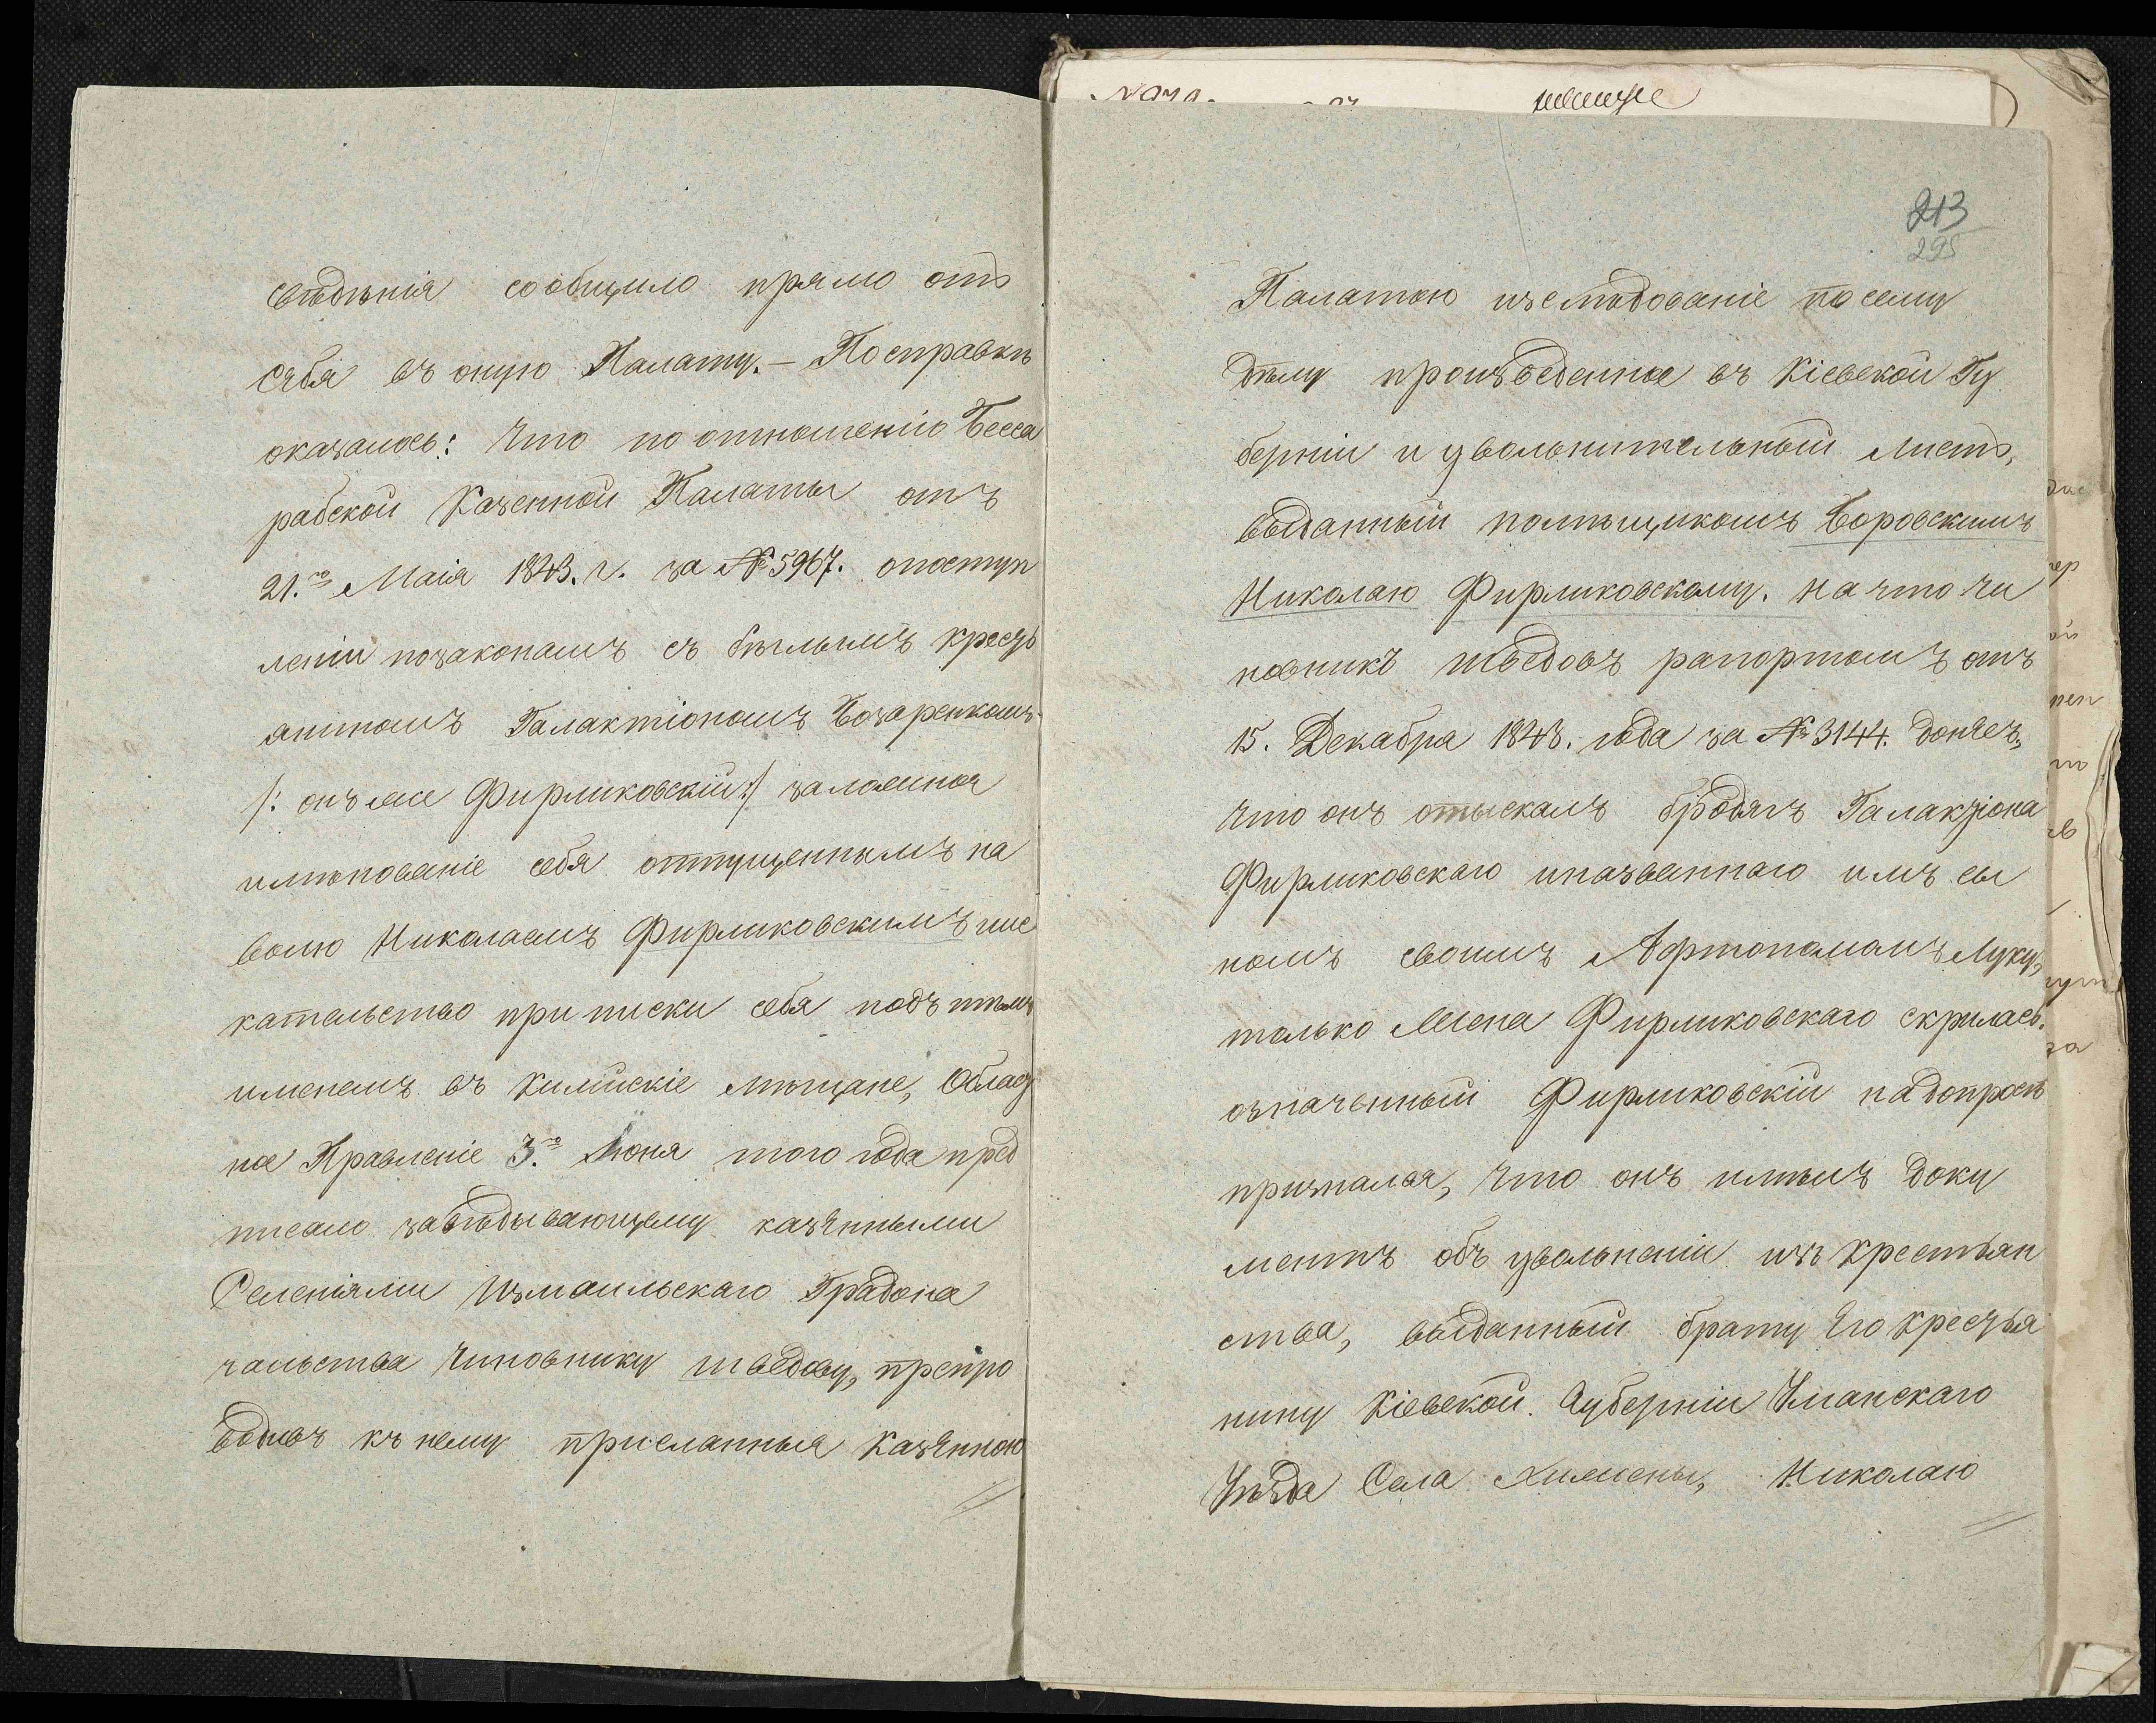 свѣдѣнія сообщило прямо отъ
себя въ оную Палату. — Посправкѣ
оказалось: Что по отношенію Бесса
рабской Казенной Палаты отъ
21.го Маія 1843. г. за № 5967. опоступ
леніи позаконамъ съ бѣглымъ кресть
яниномъ Галактіономъ Бочаренкомъ
/: онъ же Фирликовскій :/ заложное
имѣнованіе себя отпущеннымъ на
волю Николаемъ Фирликовскимъ иис
кательство приписки себя подъ тѣмъ
именемъ въ Килійскіе мѣщане, Област
ное Правленіе 3.го Іюня того года пред
писало завѣдывающему казенными
Селеніями Измаильскаго Градона
чальства Чиновнику Шведову, препро
водивъ къ нему присланныя Казенною
213
295
Палатою изслѣдованіе посему
дѣлу произведенное въ Кіевской Гу
берніи и увольнительный листъ,
выданный помѣщикомъ Боровскимъ
Николаю Фирликовскому. На что Чи
новникъ Шведовъ рапортомъ отъ
15. Декабря 1843. года за № 3144. донесъ,
Что онъ отыскалъ бродягъ Галактіона
Фирликовскаго иназваннаго имъ сы
номъ своимъ Афтономомъ Луку,
только Жена Фирликовскаго скрилась.
означенный Фирликовскій надопросѣ
признался, Что онъ имѣлъ доку
ментъ объ увольненіи изъ крестьян
ства, выданный брату Его крестья
нину Кіевской Губерніи Уманскаго
Уѣзда Села Химены, Николаю